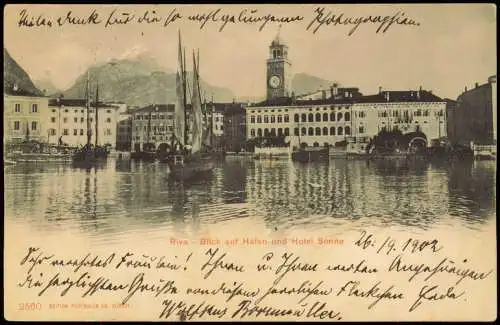 Vielen Dank für die so wohl gelungenen Photographien.
Riva - Blick auf Hafen und Hotel Sonne
26./9. 1902
Sehr verehrtes Fräulein! Ihnen & Ihren werten Angehörigen
die herzlichsten Grüße von diesem herrlichen Fleckchen Erde
2560 EDITION PHOTOGLOB CO. ZÜRICH